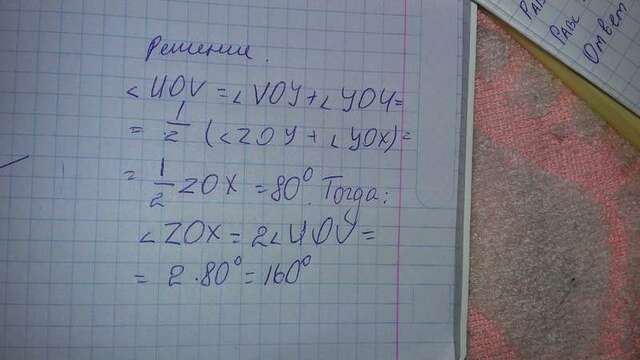 Решение.
<UOV = ∠VOY + ∠YOU =
= 1/2 (<ZOY + ∠YOX) =
= 1/2 ZOX = 80° Тогда:
∠ZOX = 2∠UOY =
= 2 · 80° = 160°
PABC
Ответ